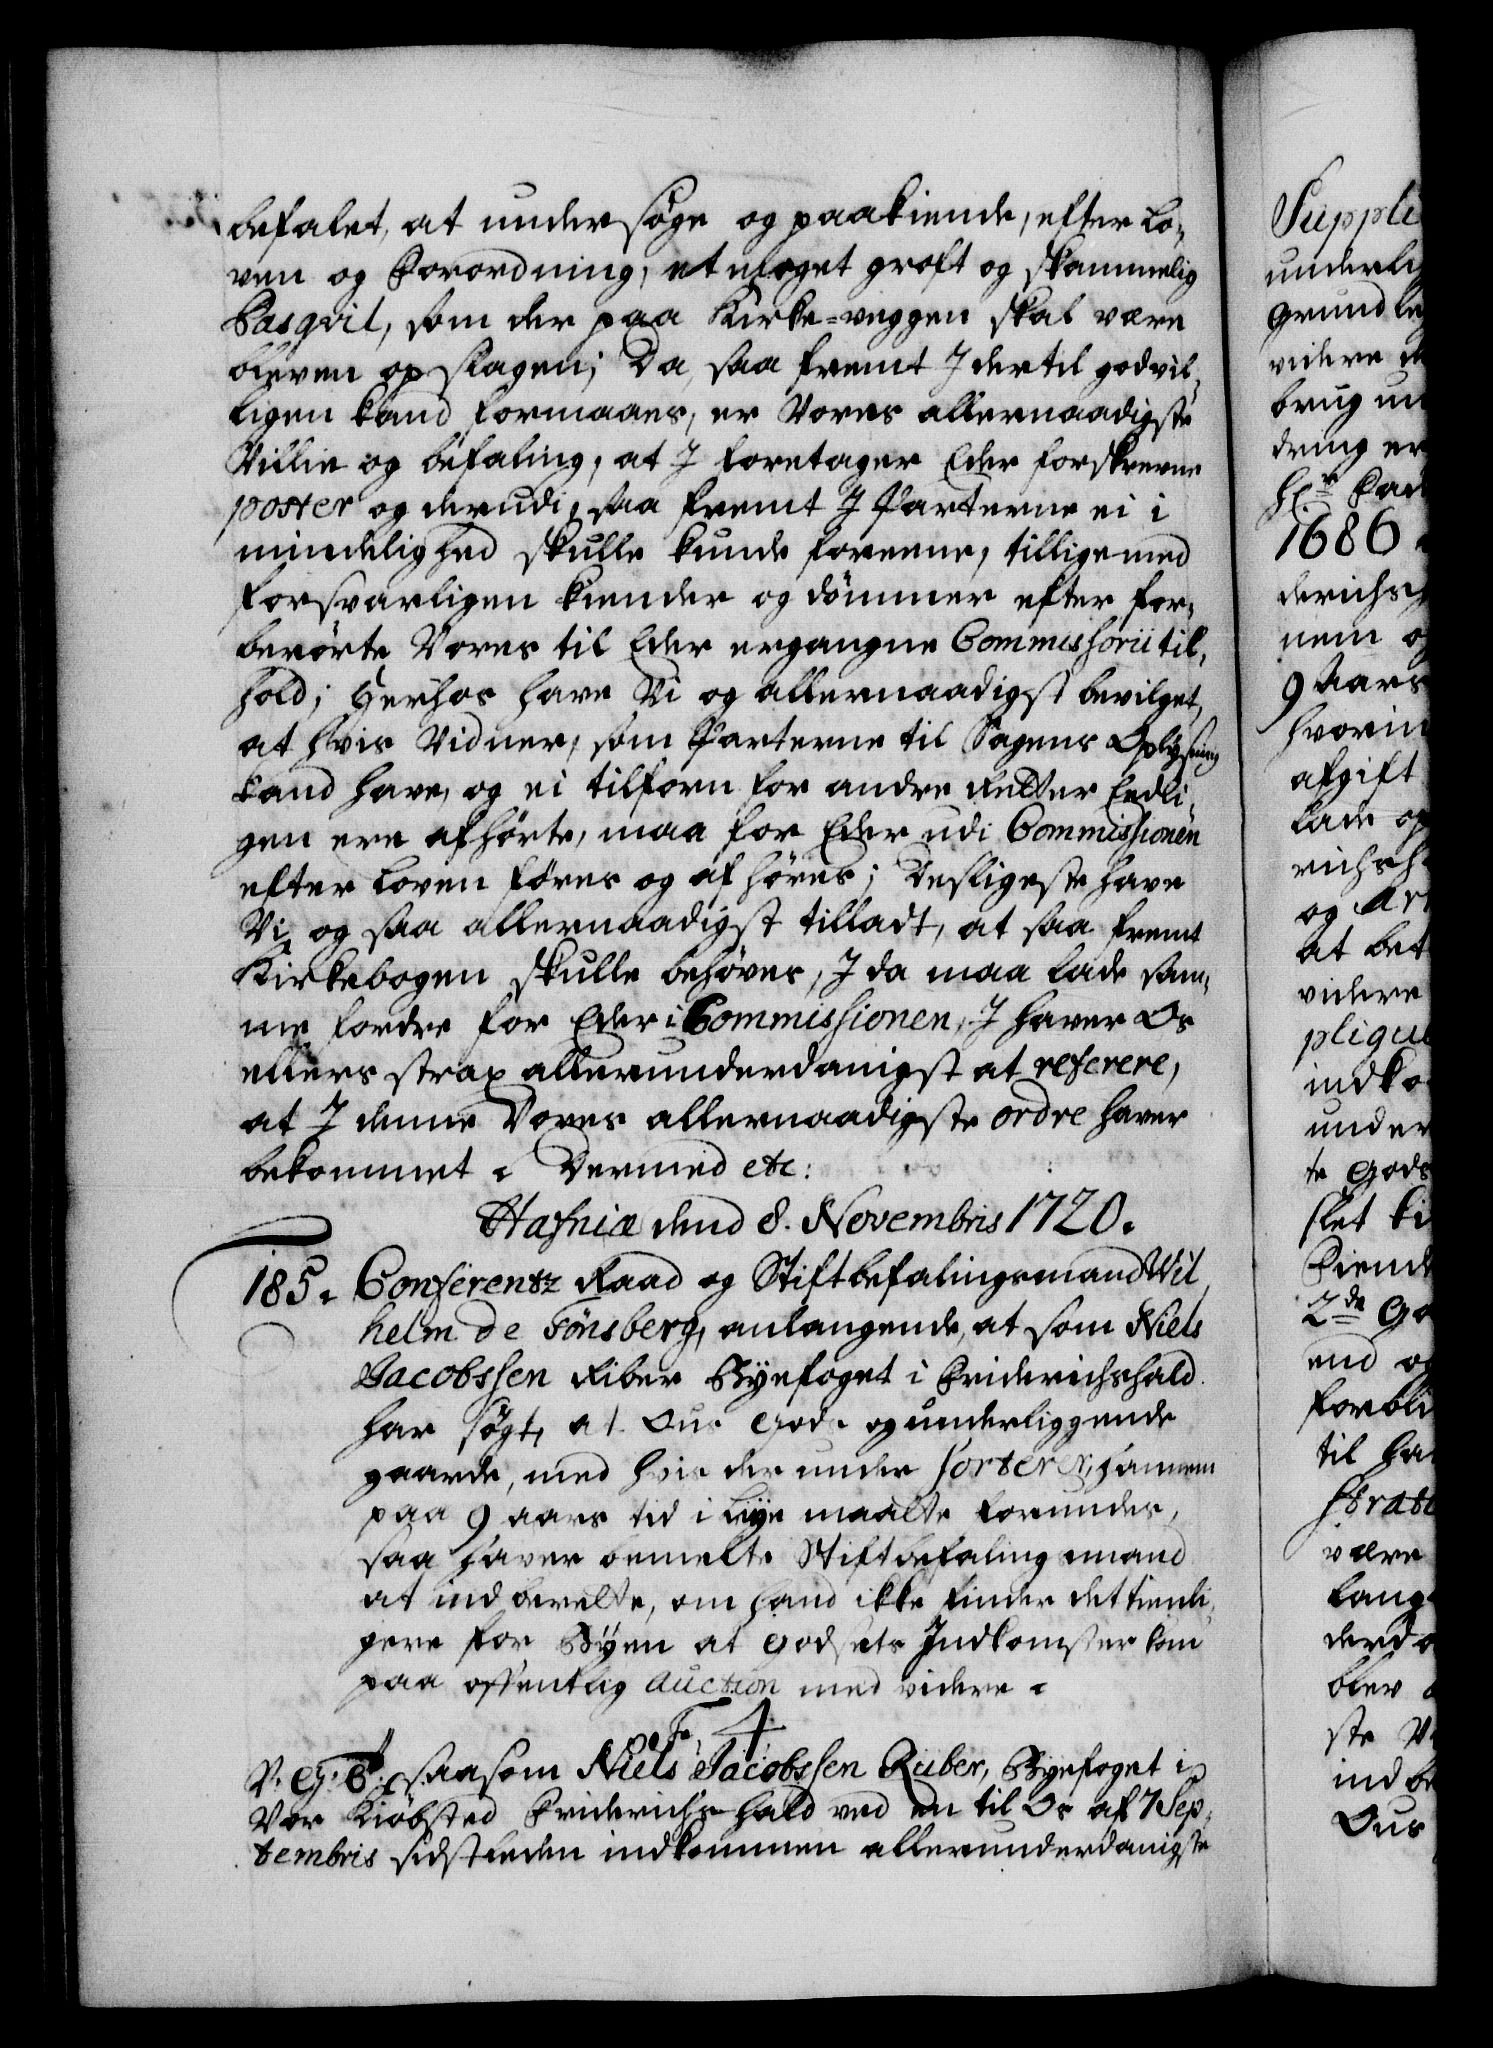 befalet, at undersøge og paakiende, efter Lo-
ven og Forordning, et meget groft og skammelig
Pasqvil, som der paa Kirke-veggen skal være
bleven opslagen; Da saa fremt I dertil godvil-
ligen kand formaaes, er Vores allernaadigste
Villie og befaling, at I foretager Eder forskrevne
poster og derudi, saa fremt I Parterne ei i
mindelighed skulle kunde foreene, tilligemed
forsvarligen kiender og dømmer efter for-
berørte Vores til Eder ergangne Commissorii til-
hold; Herhos have Vi og allernaadigst bevilget,
at hvis Vidner, som Parterne til Sagens Oplysning
kand have, og ei tilforn for andre Retter Eedli-
gen ere afhørte, maa for Eder udi Commissionen
efter Loven føres og afhøres; Desligeste have
Vi og saa allernaadigst tilladt, at saa fremt
Kirkebogen skulle behøves, I da maa lade sam-
me fordre for Eder i Commissionen, I haver Os
ellers strax allerunderdanigst at referere,
at I denne Vores allernaadigste ordre haver
bekommet. Dermed etc:
Hafniæ dend 8. Novembris 1720.
185. Conferentz Raad og Stiftbefalingsmand Wil
helm de Tønsberg, anlangende, at som Niels
Jacobssen Riber Byefoget i Friderichshald
har søgt, at Ous Gods og underliggende
gaarde, med hvis der under sorterer, hannem
paa 9 aars tid i Leye maatte forundes,
saa haver bemelte Stiftbefalingsmand
at indberette, om hand ikke finder det tienli-
gere for Byen at Godsets Indkomster kom
paa offentlig Auction med videre.
F 4
V. G. T. saasom Niels Jacobssen Riiber, Byefoget i
Vor Kiøbsted Friderichshald ved en til Os af 7 Sep-
tembris sidstleden indkommen allerunderdanigste
Supple
underli
grund le
videre
brug un
dring er
1686
derichs
nem og
9 Aars
hvorin
afgift
lade op
richsh
og Ar
at bet
videre
pliqve
indko
under
te Gods
slet ki
kiend
2de Go
end og
forbli
til ha
strat
være
lang
derda
blev
ste V
ind be
Ous